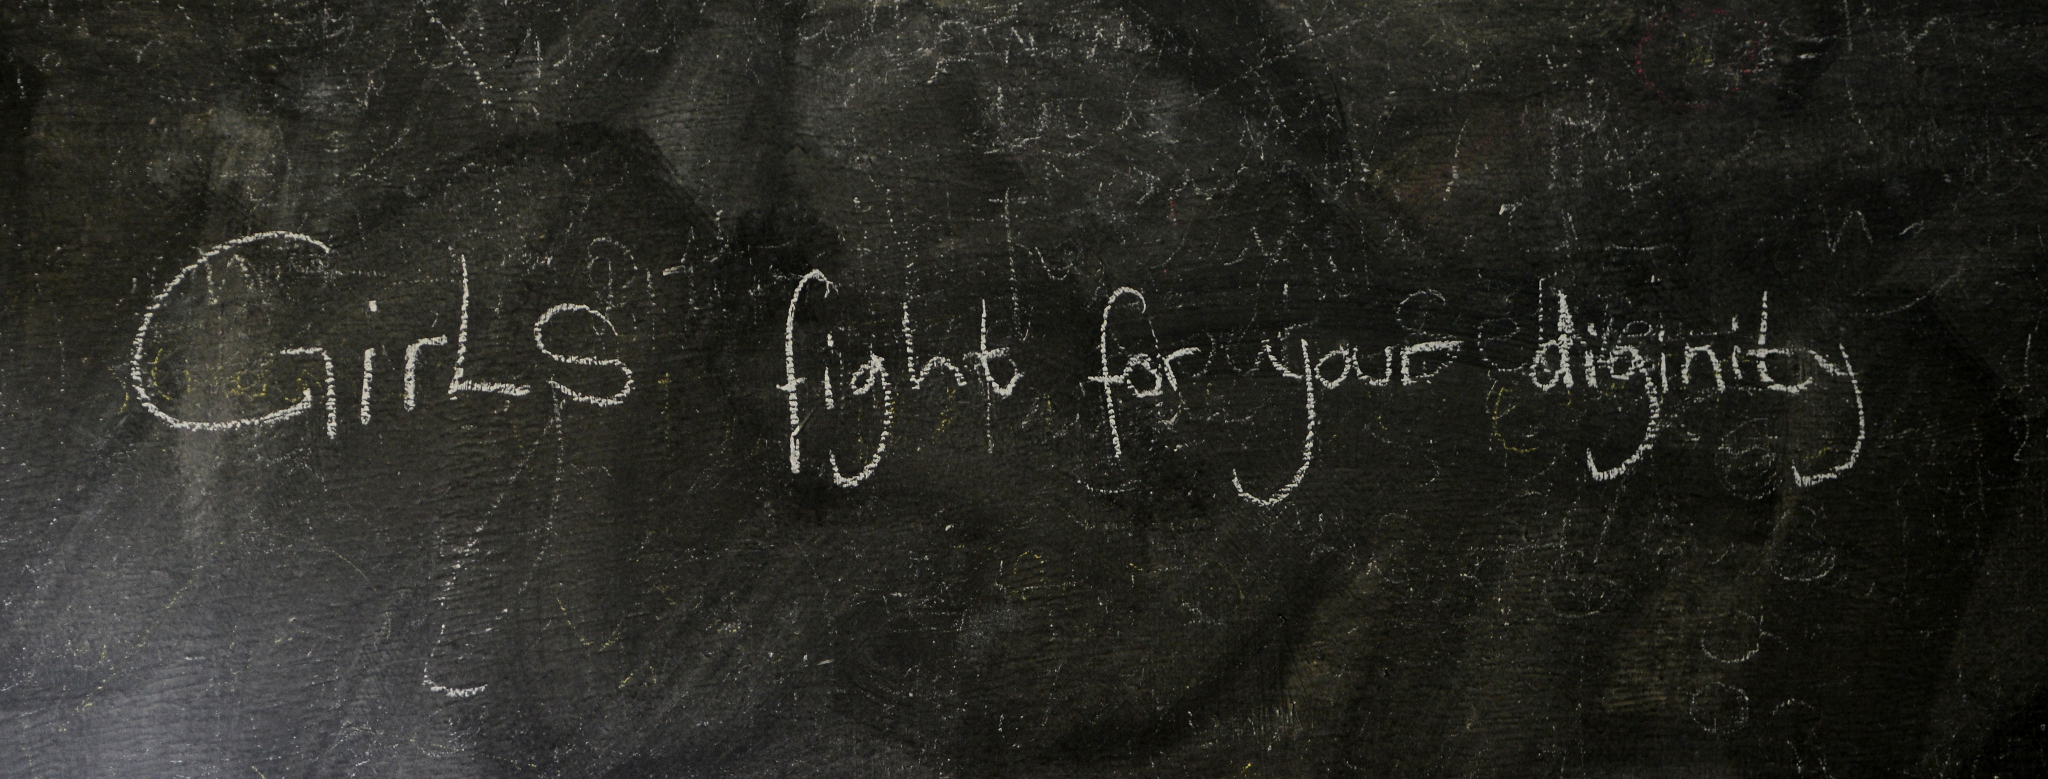 GirLs fight for your diginity